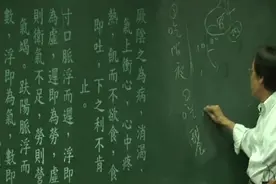 厥陰之為病,消渴,
氣上衝心,心中疼
熱,飢而不欲食,食
即吐,下之利不肯
止。
寸口脈浮而遲,浮即
為虛,遲即為勞,虛
則衛氣不足,勞則營
氣竭。趺陽脈浮而
數,浮即為氣,數即